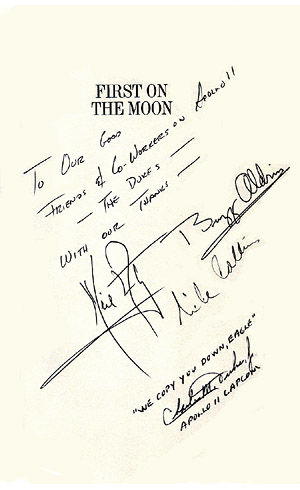 FIRST ON
THE MOON
To Our Good
Friends & Co-Workers on Apollo 11
— The Dukes —
With our Thanks —
Buzz Aldrin
Neil
Mike Collins
"WE COPY YOU DOWN, EAGLE"
Charles M Duke, Jr.
APOLLO 11 CAPCOM